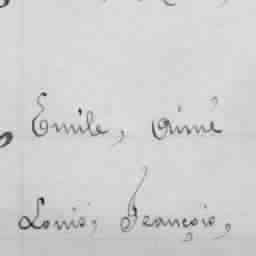 Emile, Aimé
Louis, François,